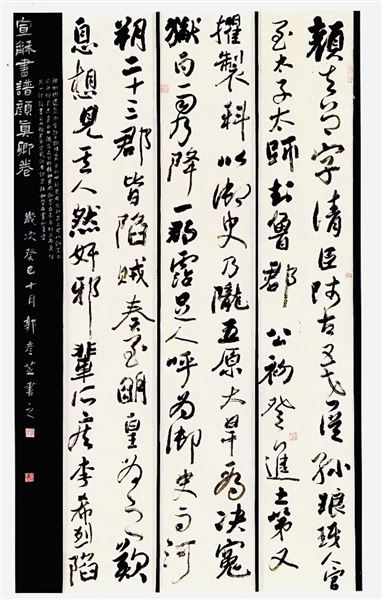 顏真卿字清臣師古五世從孫琅琊人官
至太子太師封魯郡公初登進士第又
擢製科以御史乃隴五原大旱為決冤
獄而雨降一郡霑足人呼為御史雨河
朔二十三郡皆陷賊奏至明皇為之歎
息想見其人然奸邪輩所疾李希烈陷
宣龢書譜顏真卿卷
歲次癸巳十月郭彥芝書之